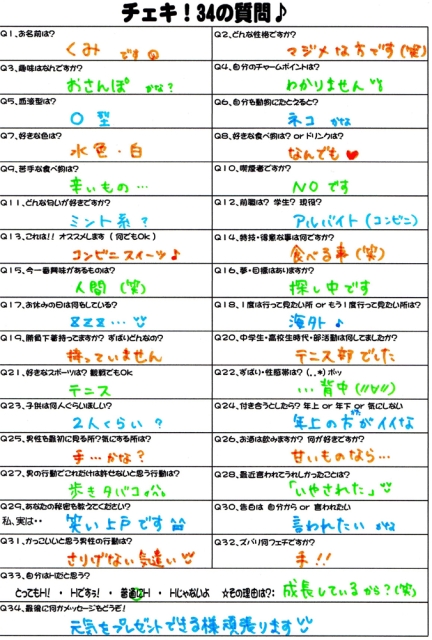 チェキ！34の質問♪
Q1、お名前は？
くみ です
Q2、どんな性格ですか？
マジメな方です(笑)
Q3、趣味はなんですか？
おさんぽ かな？
Q4、自分のチャームポイントは？
わかりません
Q5、血液型は？
O型
Q6、自分を動物にたとえると？
ネコ かな
Q7、好きな色は？
水色・白
Q8、好きな食べ物は？ or ドリンクは？
なんでも♥
Q9、苦手な食べ物は？
辛いもの…
Q10、喫煙者ですか？
NOです
Q11、どんな匂いが好きですか？
ミント系？
Q12、前職は？ 学生？ 現役？
アルバイト(コンビニ)
Q13、これは！！ オススメします （何でもOk）
コンビニスイーツ♪
Q14、特技・得意な事は何ですか？
食べる事(笑)
Q15、今一番興味があるものは？
人間 (笑)
Q16、夢・目標はありますか？
探し中です
Q17、お休みの日は何をしている？
ZZZ…
Q18、1度は行って見たい所 or もう1度行って見たい所は？
海外♪
Q19、勝負下着持ってますか？ ずばりどんなの？
持っていません
Q20、中学生・高校生時代・部活動は何してましたか？
テニス部でした
Q21、好きなスポーツは？ 観戦でもOk
テニス
Q22、ずばり・性感帯は？ (．．*) ポッ
…背中(//∀//)
Q23、子供は何人ぐらいほしい？
2人くらい？
Q24、付き合うとしたら？ 年上 or 年下 or 気にしない
年上の方がイイな
Q25、男性を最初に見る所？気にする所は？
手…かな？
Q26、お酒は飲みますか？ 何が好きですか？
甘いものなら…
Q27、男の行動でこれだけは許せないと思う行動は？
歩きタバコ
Q28、最近言われてうれしかったことは？
「いやされた」
Q29、あなたの秘密を教えてください？
私、実は・・ 笑い上戸です
Q30、告白は 自分から or 言われたい
言われたい かな
Q31、かっこいいと思う男性の行動は？
さりげない気遣い
Q32、ズバリ何フェチですか？
手!!
Q33、自分はHだと思う？
とってもH！ ・ Hでちぅ！ ・ 普通にH ・ Hじゃないよ ☆その理由は？： 成長しているから？(笑)
Q34、最後に何かメッセージをどうぞ！
元気をプレゼントできる様頑張ります